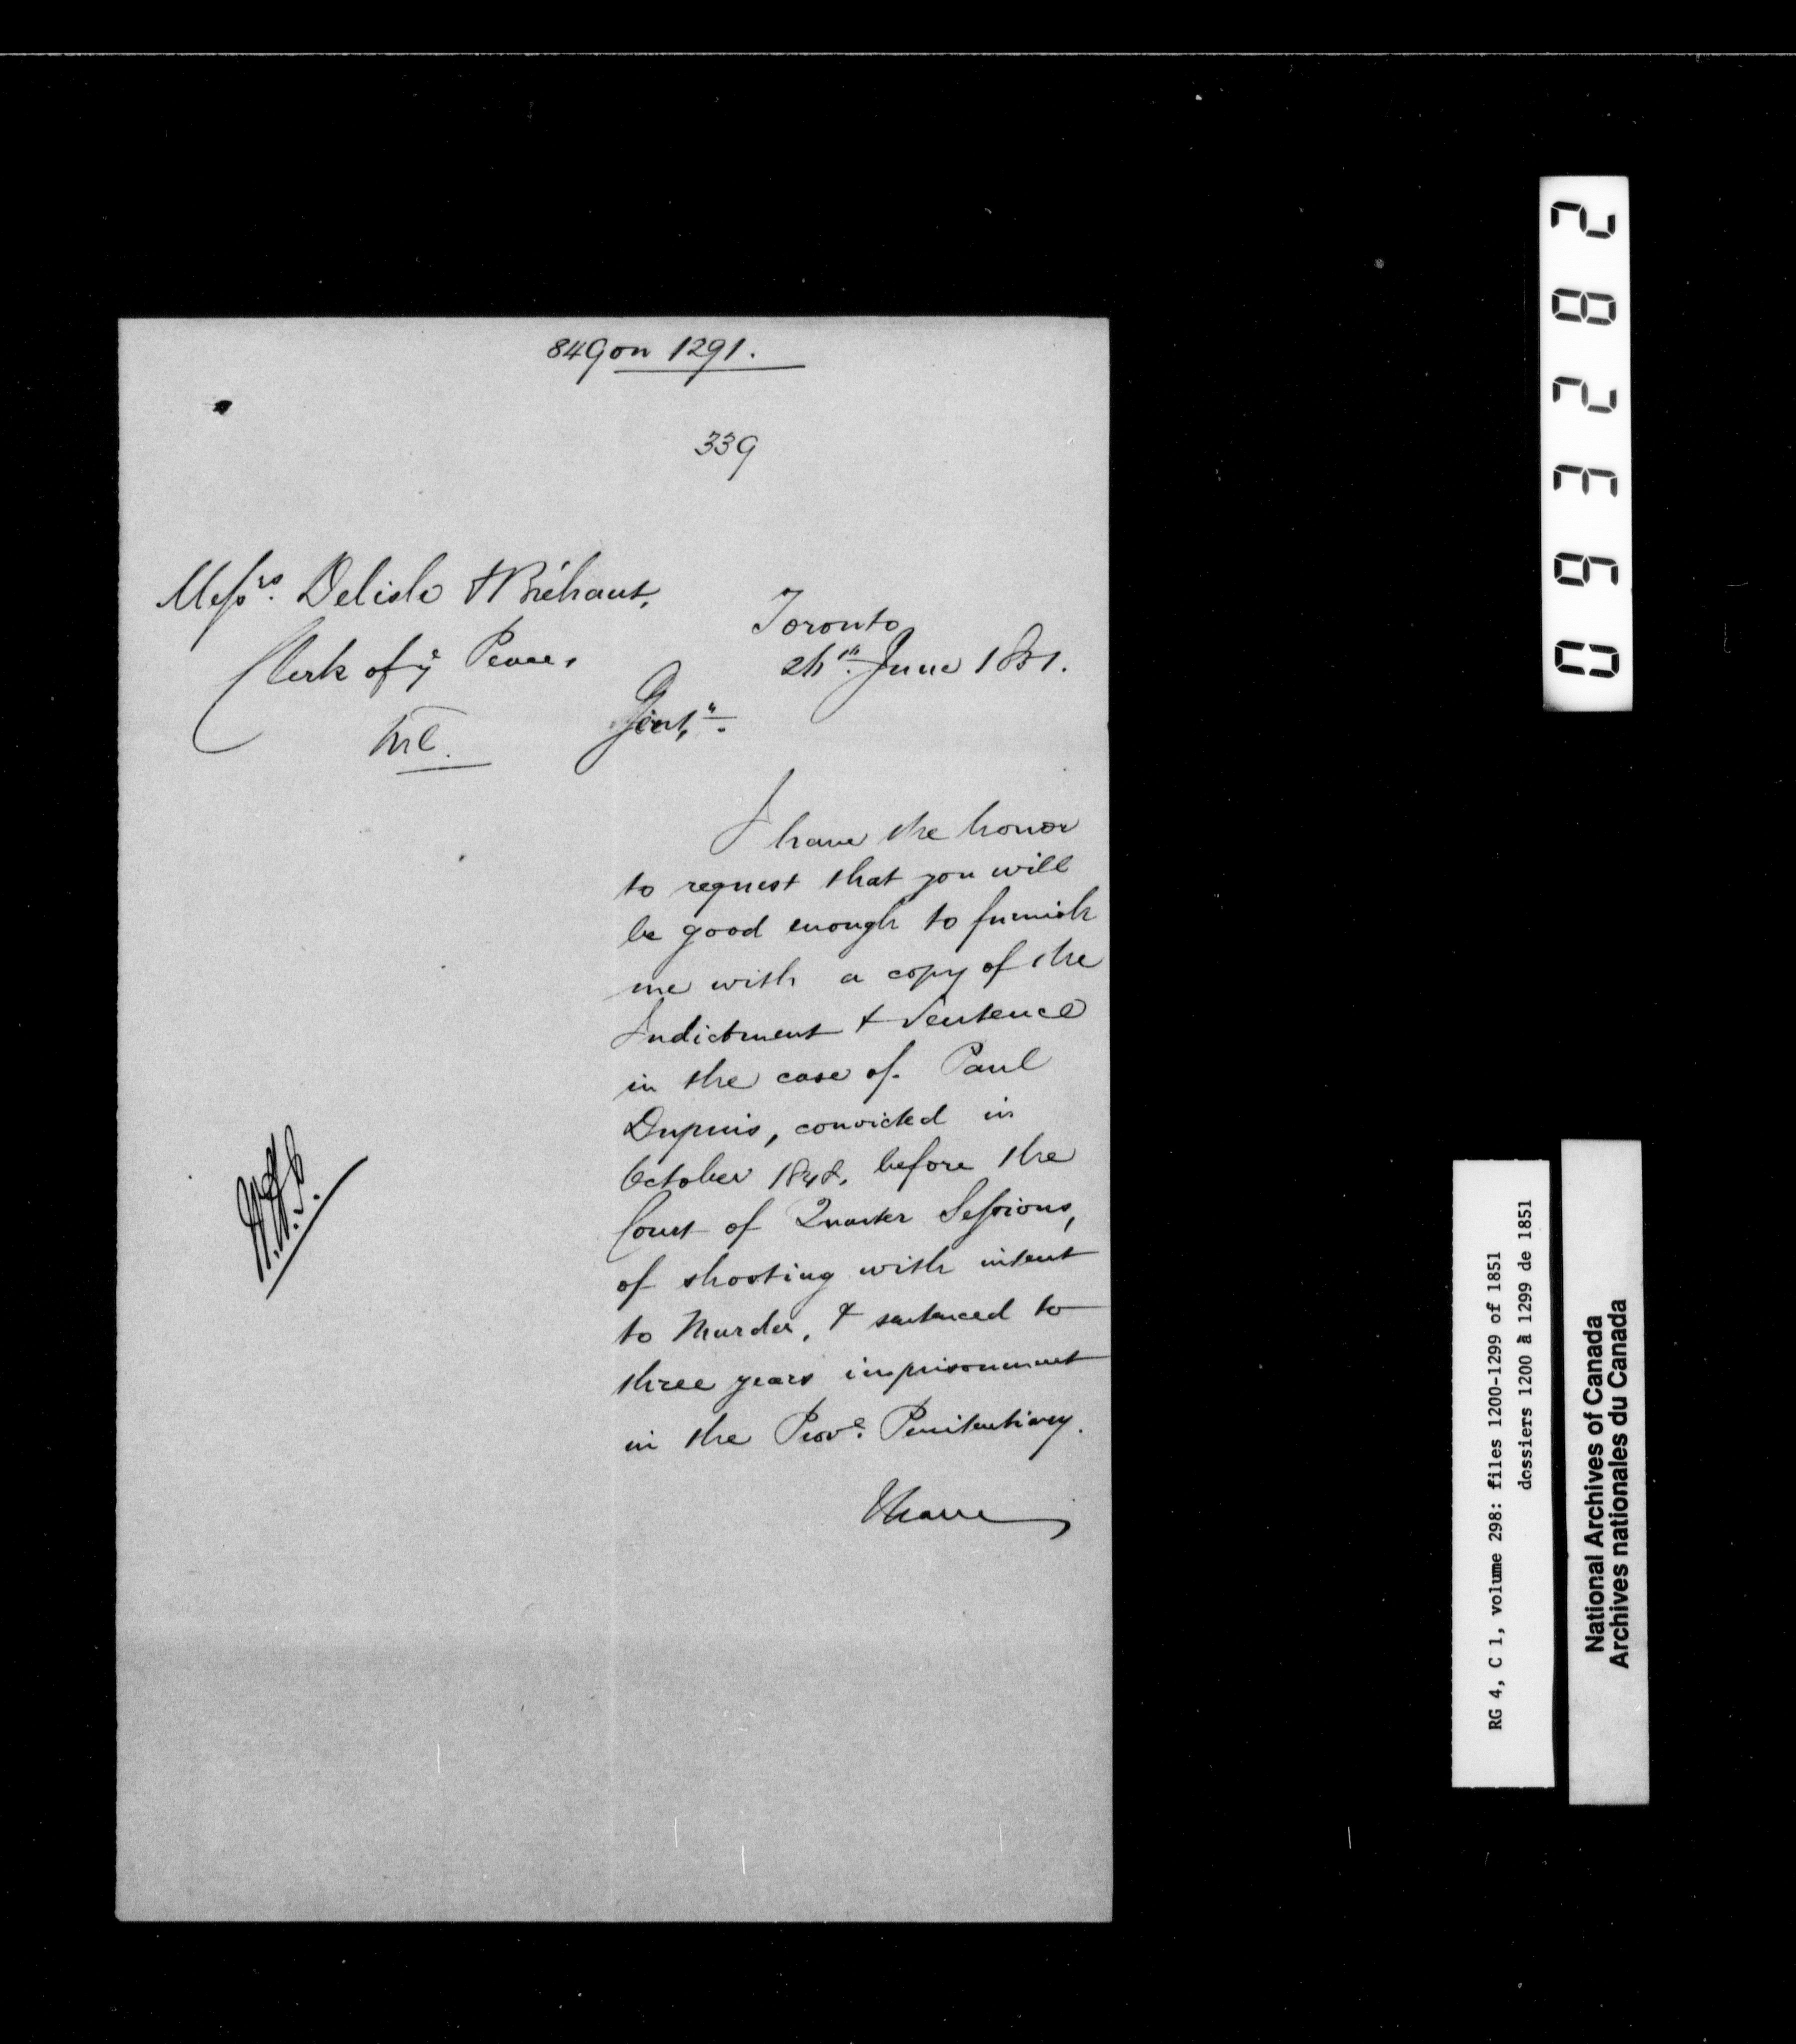 849 on 1291.
339
Messrs. Delisle & Bréhaut,
Clerk of ye Peace,
Toronto
24th. June 1851.
Gentn.
I have the honor
to request that you will
be good enough to furnish
me with a copy of the
Indictment & Sentence
in the case of Paul
Dupuis, convicted in
October 1848, before the
Court of Quarter Sessions,
of shooting with intent
to Murder, & sentenced to
three years imprisonment
in the Provl. Penitentiary.
I have
093282
RG 4, C 1, volume 298: files 1200-1299 of 1851
dossiers 1200 à 1299 de 1851
National Archives of Canada
Archives nationales du Canada